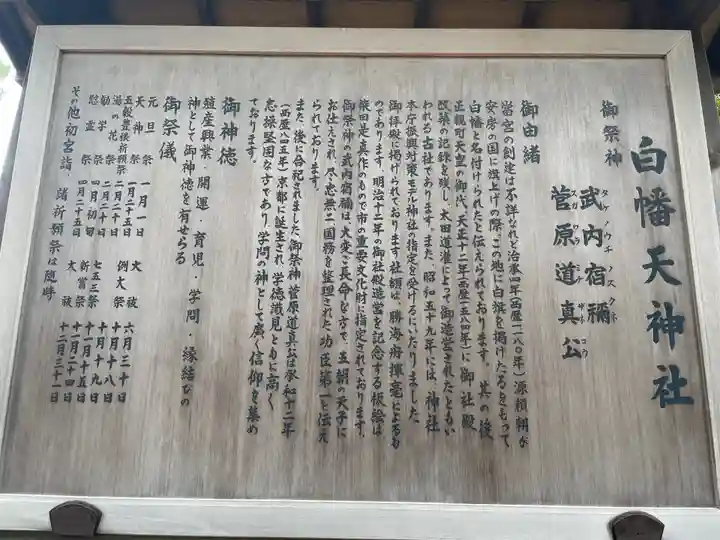 白幡天神社
御祭神
武内宿禰
タケノウチノスクネ
菅原道真公
スガワラノミチザネコウ
御由緒
当宮の創建は不詳なれど治承四年(西暦一一八〇年)源頼朝が
安房の国に旗上げの際、この地に白旗を掲げたるをもって
白幡と名付けられたと伝えられております。其の後
正親町天皇の御代、天正十二年(西暦一五八四年)に御社殿
改築の記録を残し、太田道灌によって御造営されたともい
われる古社であります。また、昭和五十九年には、神社
本庁振興対策モデル神社の指定を受けるにいたりました。
御拝殿に掲げられております社額は、勝海舟揮毫によるも
のであります。明治十二年の御社殿造営を記念する板絵は
柴田是真作のもので市の重要文化財に指定されております。
御祭神の武内宿禰は、大変ご長命な方で、五朝の天子に
お仕えされ、尽忠無二国務を整理された功臣第一と伝え
られております。
また、後に合祀されました、御祭神菅原道真公は承和十二年
(西暦八四五年)京都に誕生され、学徳識見ともに高く
志操堅固な方であり、学問の神として広く信仰を集め
ております。
御神徳
殖産興業・開運・育児・学問・縁結びの
神として御神徳を有せらる
御祭儀
元旦祭 一月一日 大祓 六月三十日
天神祭 一月二十五日 例大祭 十月十八日
五穀豊穣祈願祭 二月二十日 十月十九日
湯の花祭 二月二十日 七五三祭 十一月十五日
勧学祭 四月初旬 新嘗祭 十一月二十四日
慰霊祭 四月二十五日 大祓 十二月三十一日
その他初宮詣 諸祈願祭は随時